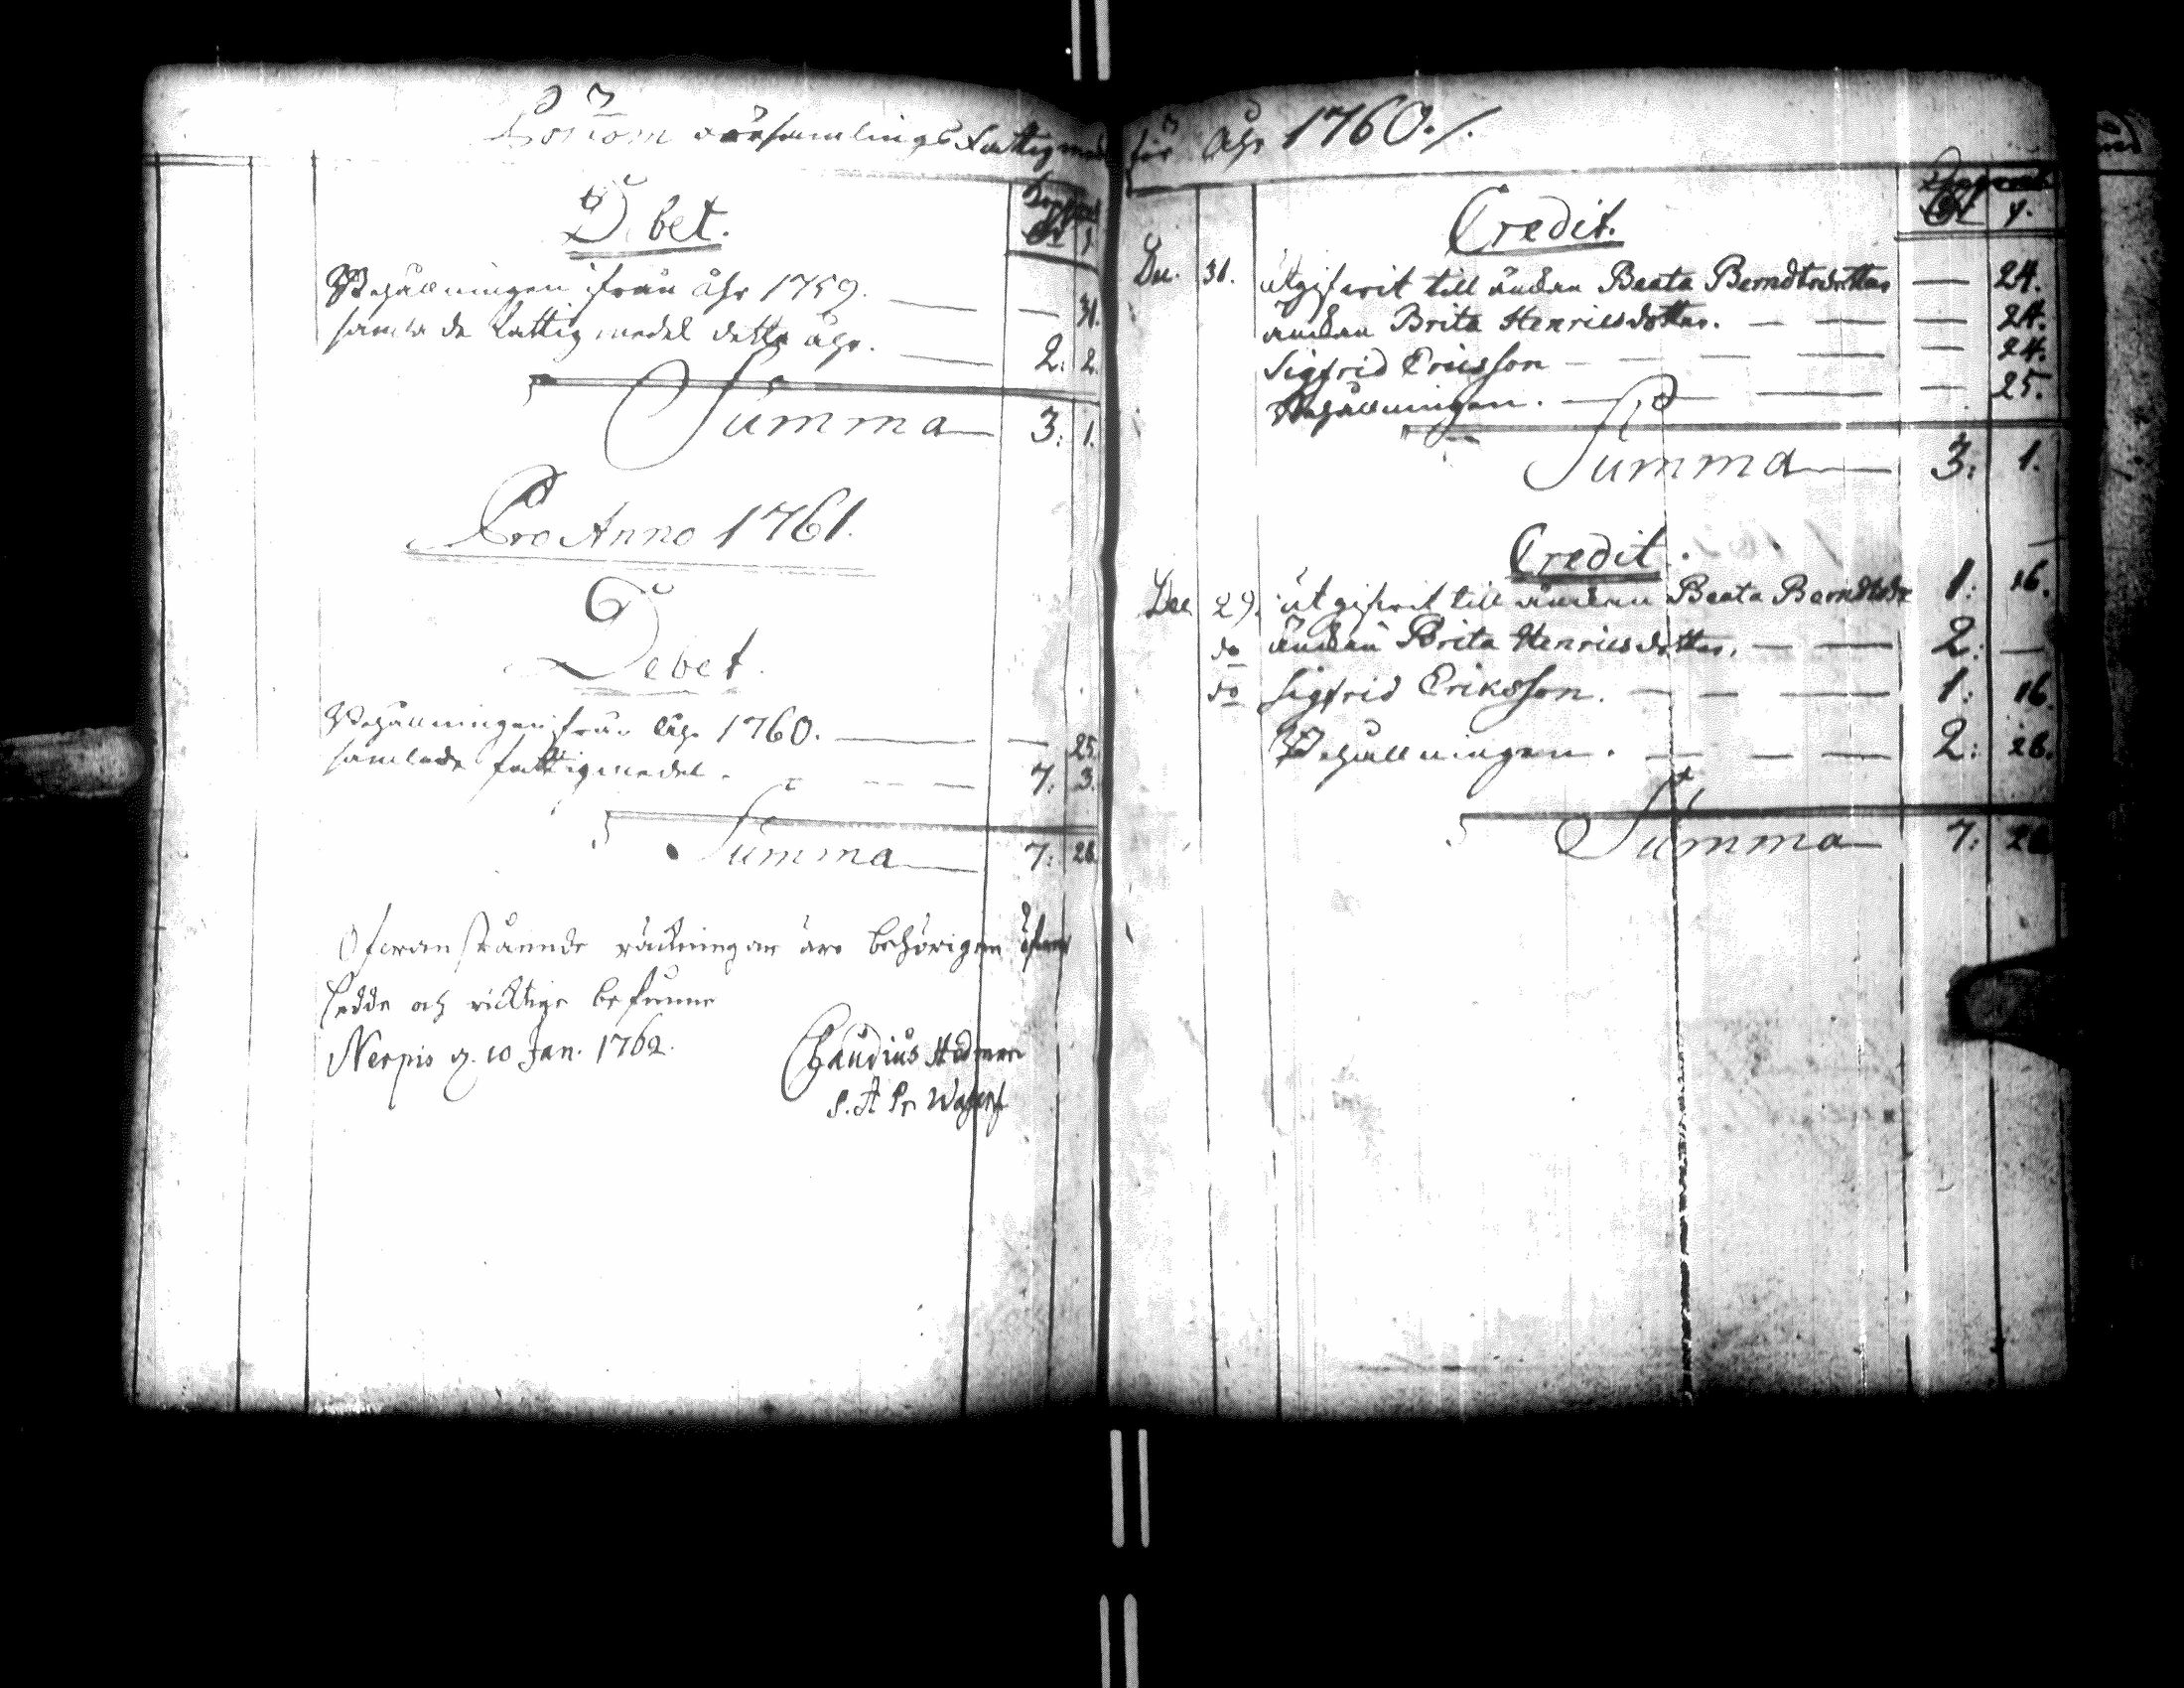 församlings fattigmed
Debet.
Behållningen ifrån åhr 1759. 31.
samlade fattigmedel detta åhr. 2: 2.
Summa 3: 1.
Pro Anno 1761.
Debet.
Behållningen från åhr 1760. 25.
samlade fattigmedel. 7: 3.
Summa 7: 28.
Ofwanstående räkningar äro behörigen öfwer
sedde och richtige befundne
Nerpis d. 10 Jan. 1762.
Claudius Hedman
för åhr 1760./.
Credit.
Dec. 31. utgifwit till änckan Beata Berndtsdotter 24.
änckan Brita Henricsdotter. 24.
Sigfrid Ericsson 24.
Behållningen. 25.
Summa 3: 1.
Credit.
Dec. 29. utgifwit till änckan Beata Berndtsdr 1: 16.
do änckan Brita Henricsdotter. 2: —
do Sigfrid Eriksson. 1: 16.
Behållningen. 2: 28.
Summa 7: 28